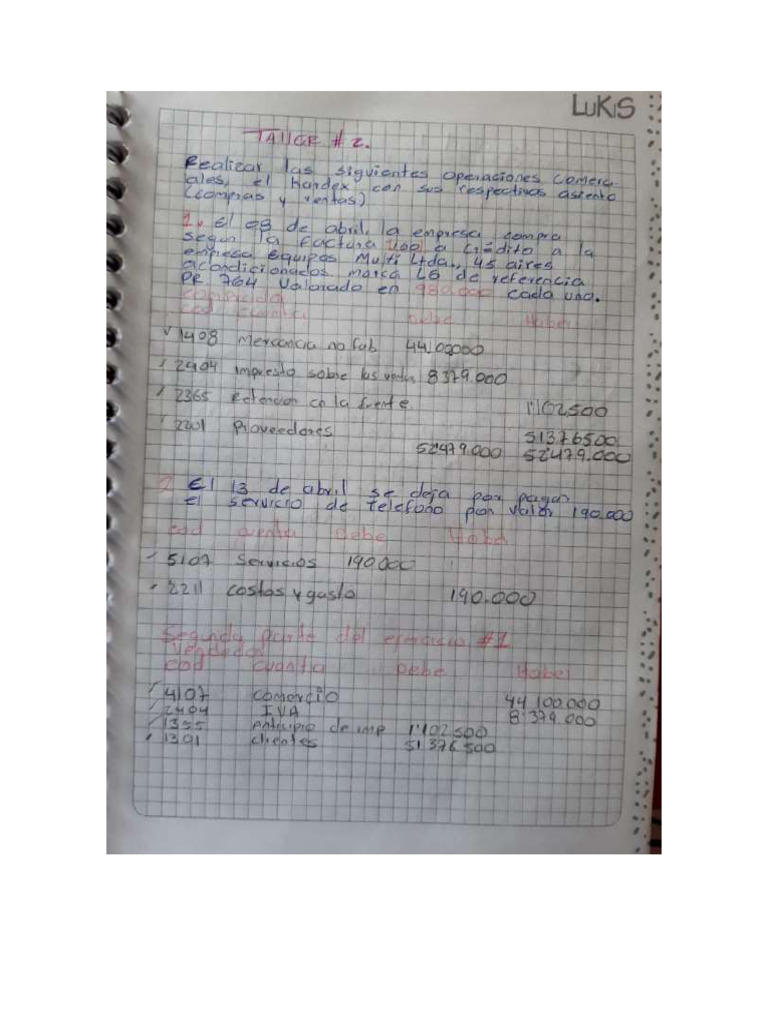 LUKIS
TALLER # 2.
Realizar las siguientes operaciones comerc-
iales, el Kardex con sus respectivos asiento
(compras y ventas)
1. El 08 de abril, la empresa compra
segun la factura a crédito a la
empresa Equipos Multi Ltda., 45 aires
acondicionados marca LG de referencia
PR 764 valorado en 980.000 cada uno.
cod cuenta Debe Haber
1408 Mercancia no fab 44.100000
2404 impuesto sobre las ventas 8379.000
2365 Retencion en la fuente. 1'102.500
2201 Proveedores 51376500
52'479.000 52'479.000
2 El 13 de abril se deja por pagar
el servicio de telefono por valor 190.000
cod cuenta Debe Haber
5107 Servicios 190.000
2211 costos y gasto 190.000
Segunda parte del ejercicio #1
Vendedor
cod cuenta Debe Haber
4107 comercio 44 100.000
2404 IVA 8'379.000
1355 Anticipio de imp 1'102.500
1301 clientes 51'376.500